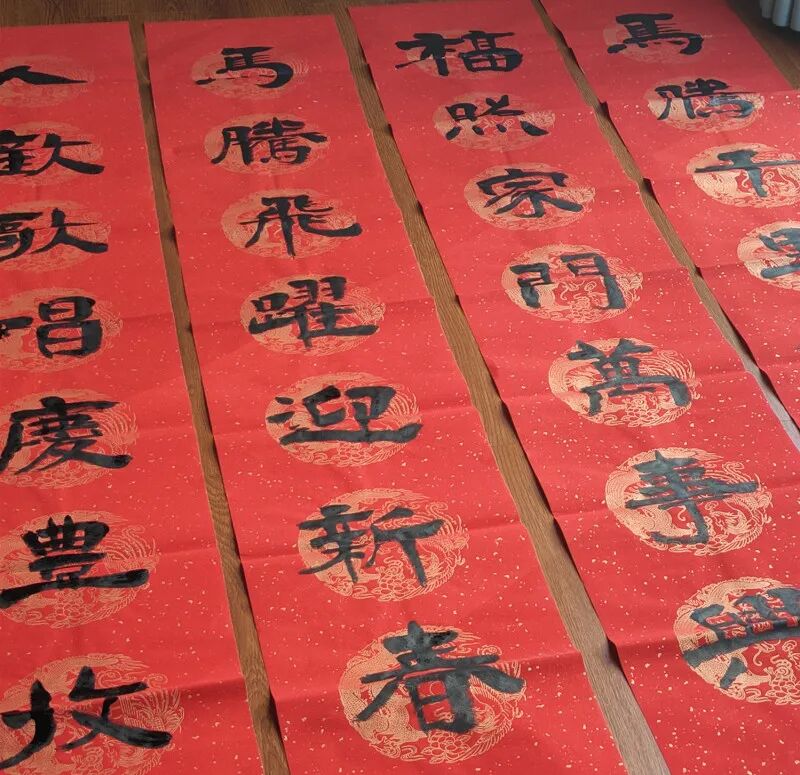 馬騰千
福照家門萬事興
馬騰飛躍迎新春
人歡歌唱慶豐收